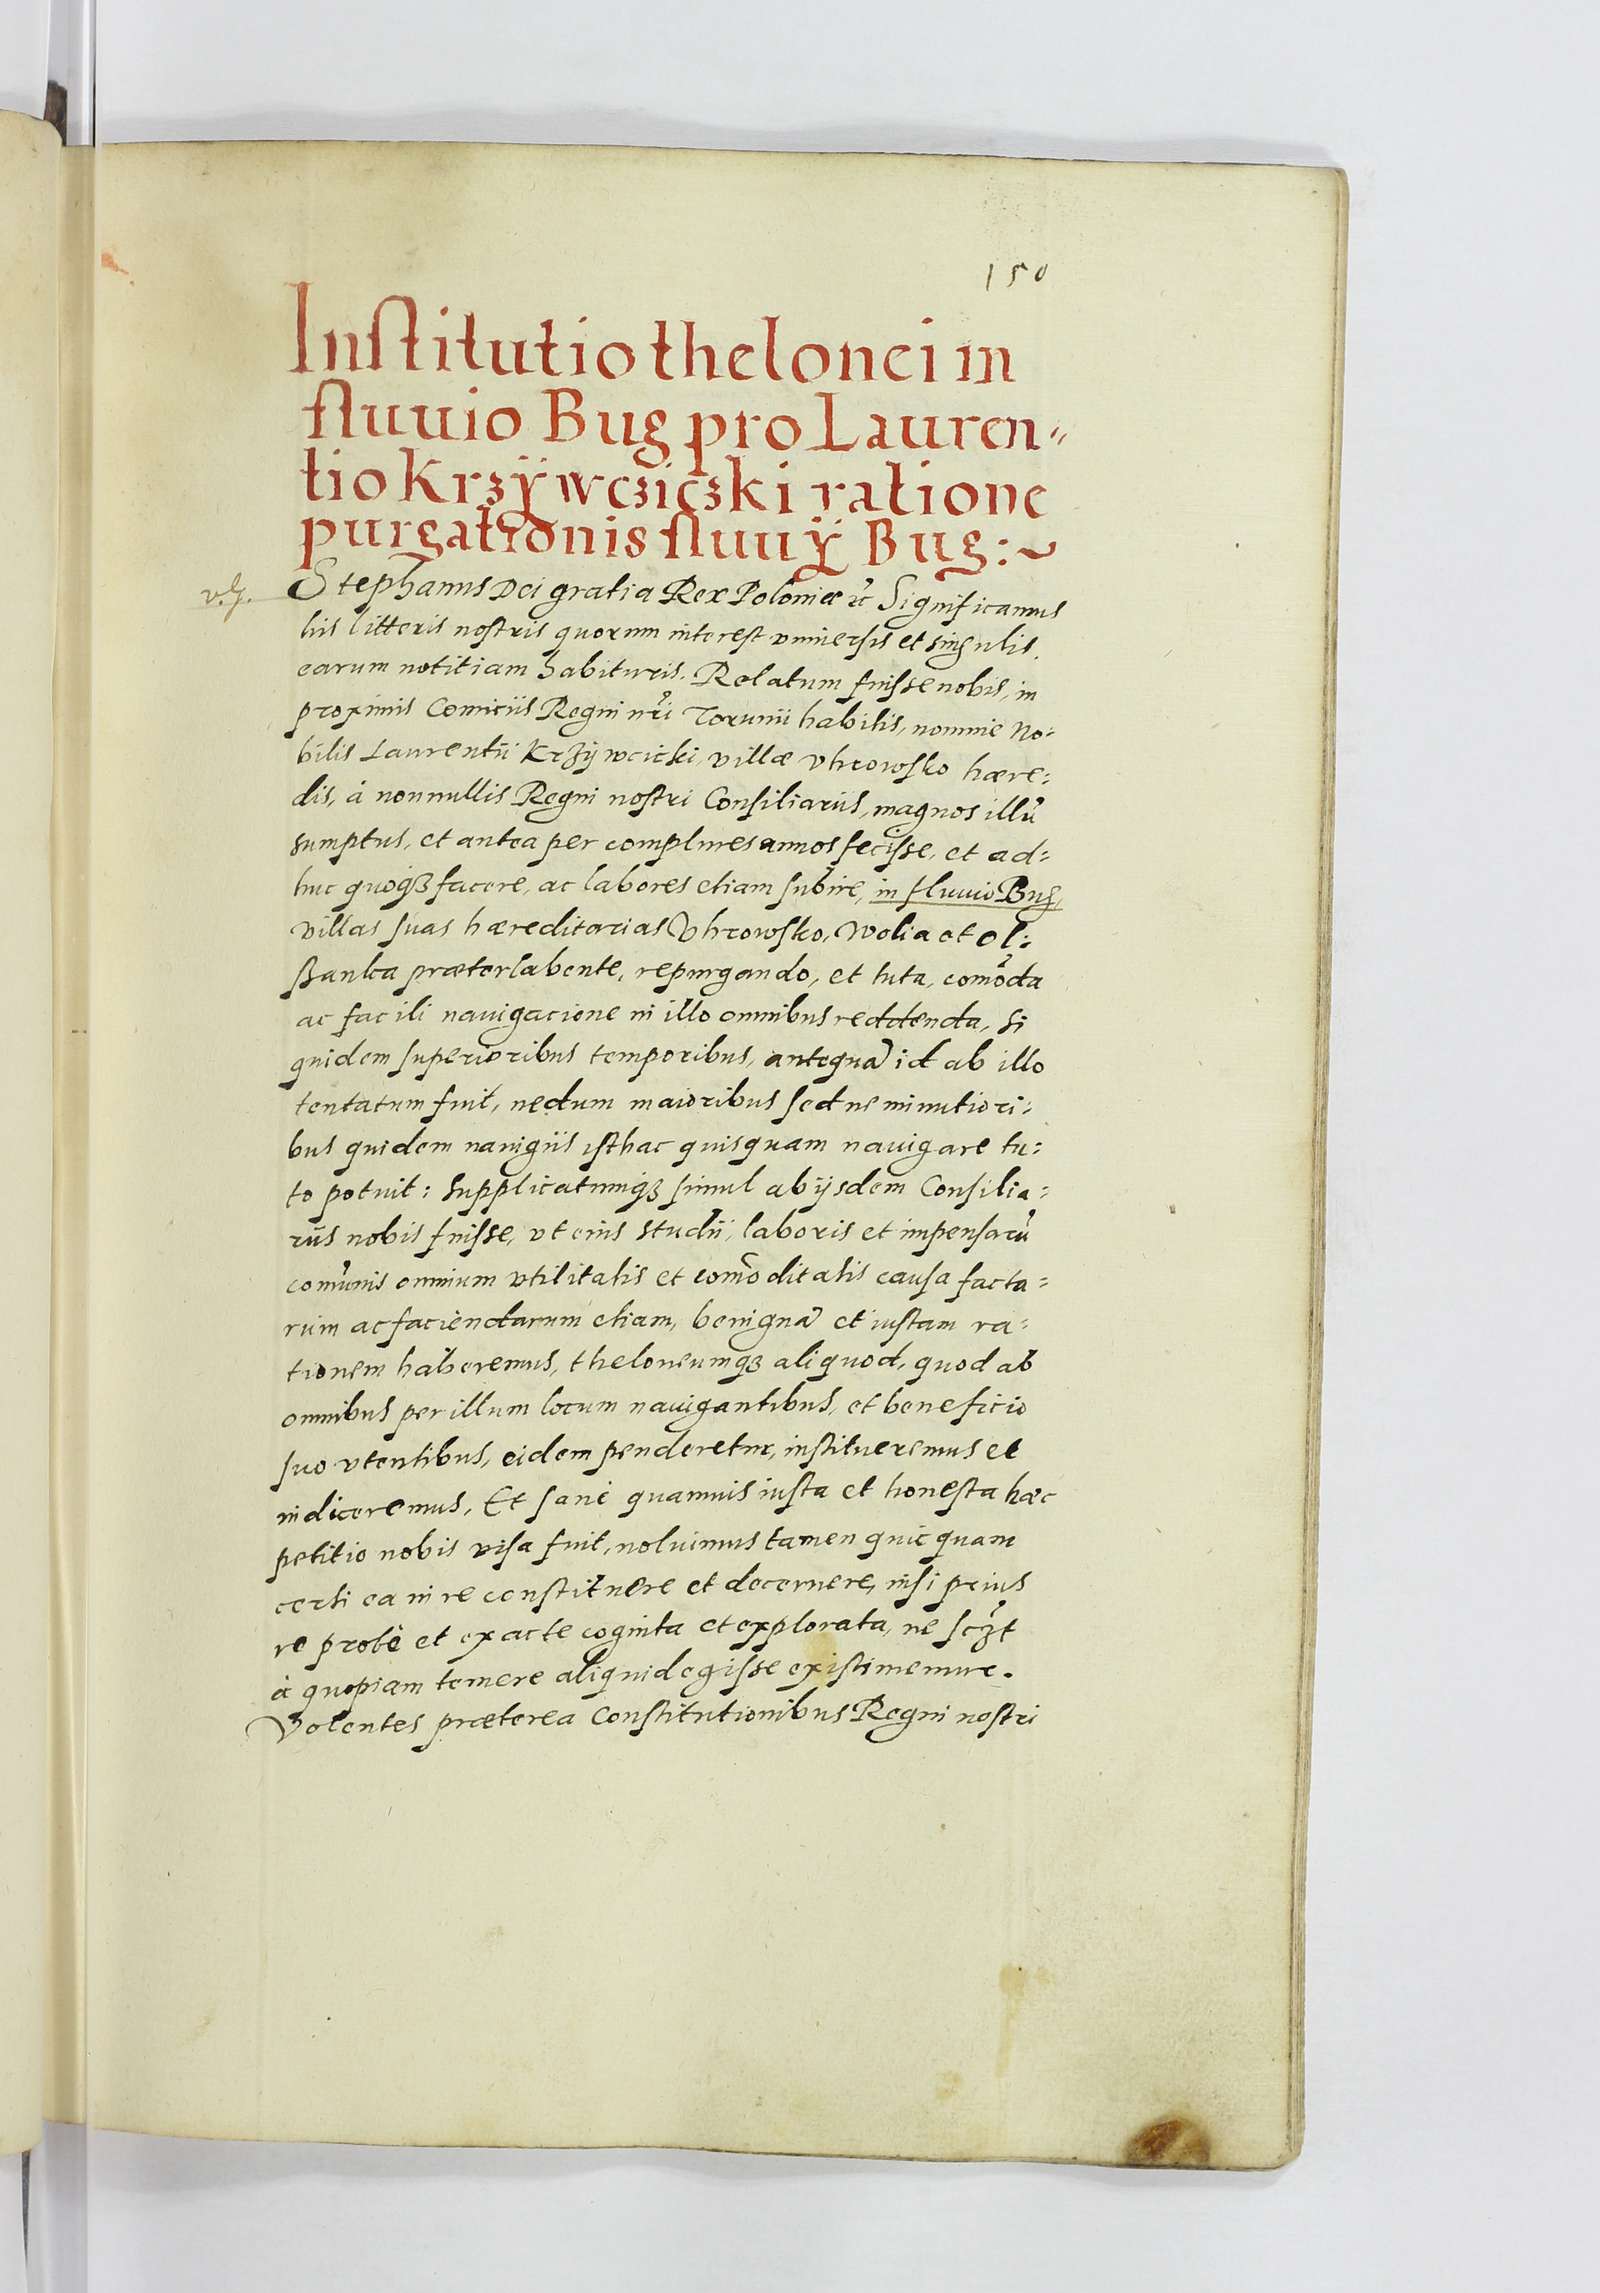 150
Institutio thelonei in
fluuio Bug pro Lauren=
tio Krzÿwcziczki ratione
purgationis fluuÿ Bug:~
Stephanus Dei gratia Rex Poloniæ etc̃ Significamus
his litteris nostris quorum interest vniuersis et singulis.
earum notitiam habituris. Relatum fuisse nobis, in
proximis Comiciis Regni nr̃i Torunii habitis, nomine No=
bilis Laurentii Krzÿwcicki, villæ Vhrowsko hære=
dis, à nonnullis Regni nostri Consiliariis, magnos illũ
sumptus, et antea per complures annos fecisse, et ad=
huc quoqꝫ facere, ac labores etiam subire, in fluuio Bug,
villas suas hæreditarias Vhrowsko, Wolia et Ol=
ßanka præterlabente, repurgando, et tuta, com̃oda
ac facili nauigacione in illo omnibus reddenda, si
quidem superioribus temporibus, antequã id ab illo
tentatum fuit, nedum maioribus sed ne minutiori=
bus quidem nauigiis isthac quisquam nauigare tu=
to potuit: Supplicatumqꝫ simul ab ijsdem Consilia=
riis nobis fuisse, vt eius studii, laboris et impensarũ
com̃unis omnium vtilitatis et com̃oditatis causa facta=
rum ac faciendarum etiam, benignã et iustam ra=
tionem haberemus, theloneumqꝫ aliquod, quod ab
omnibus per illum locum nauigantibus, et beneficio
suo vtentibus, eidem penderetur, institueremus et
indiceremus. Et sanè quamuis iusta et honesta hæc
petitio nobis visa fuit, noluimus tamen quicquam
certi ea in re constituere et decernere, nisi prius
re probè et exacte cognita et explorata, ne scꝫt
à quopiam temere aliquid egisse existimemur.
Volentes præterea Constitutionibus Regni nostri